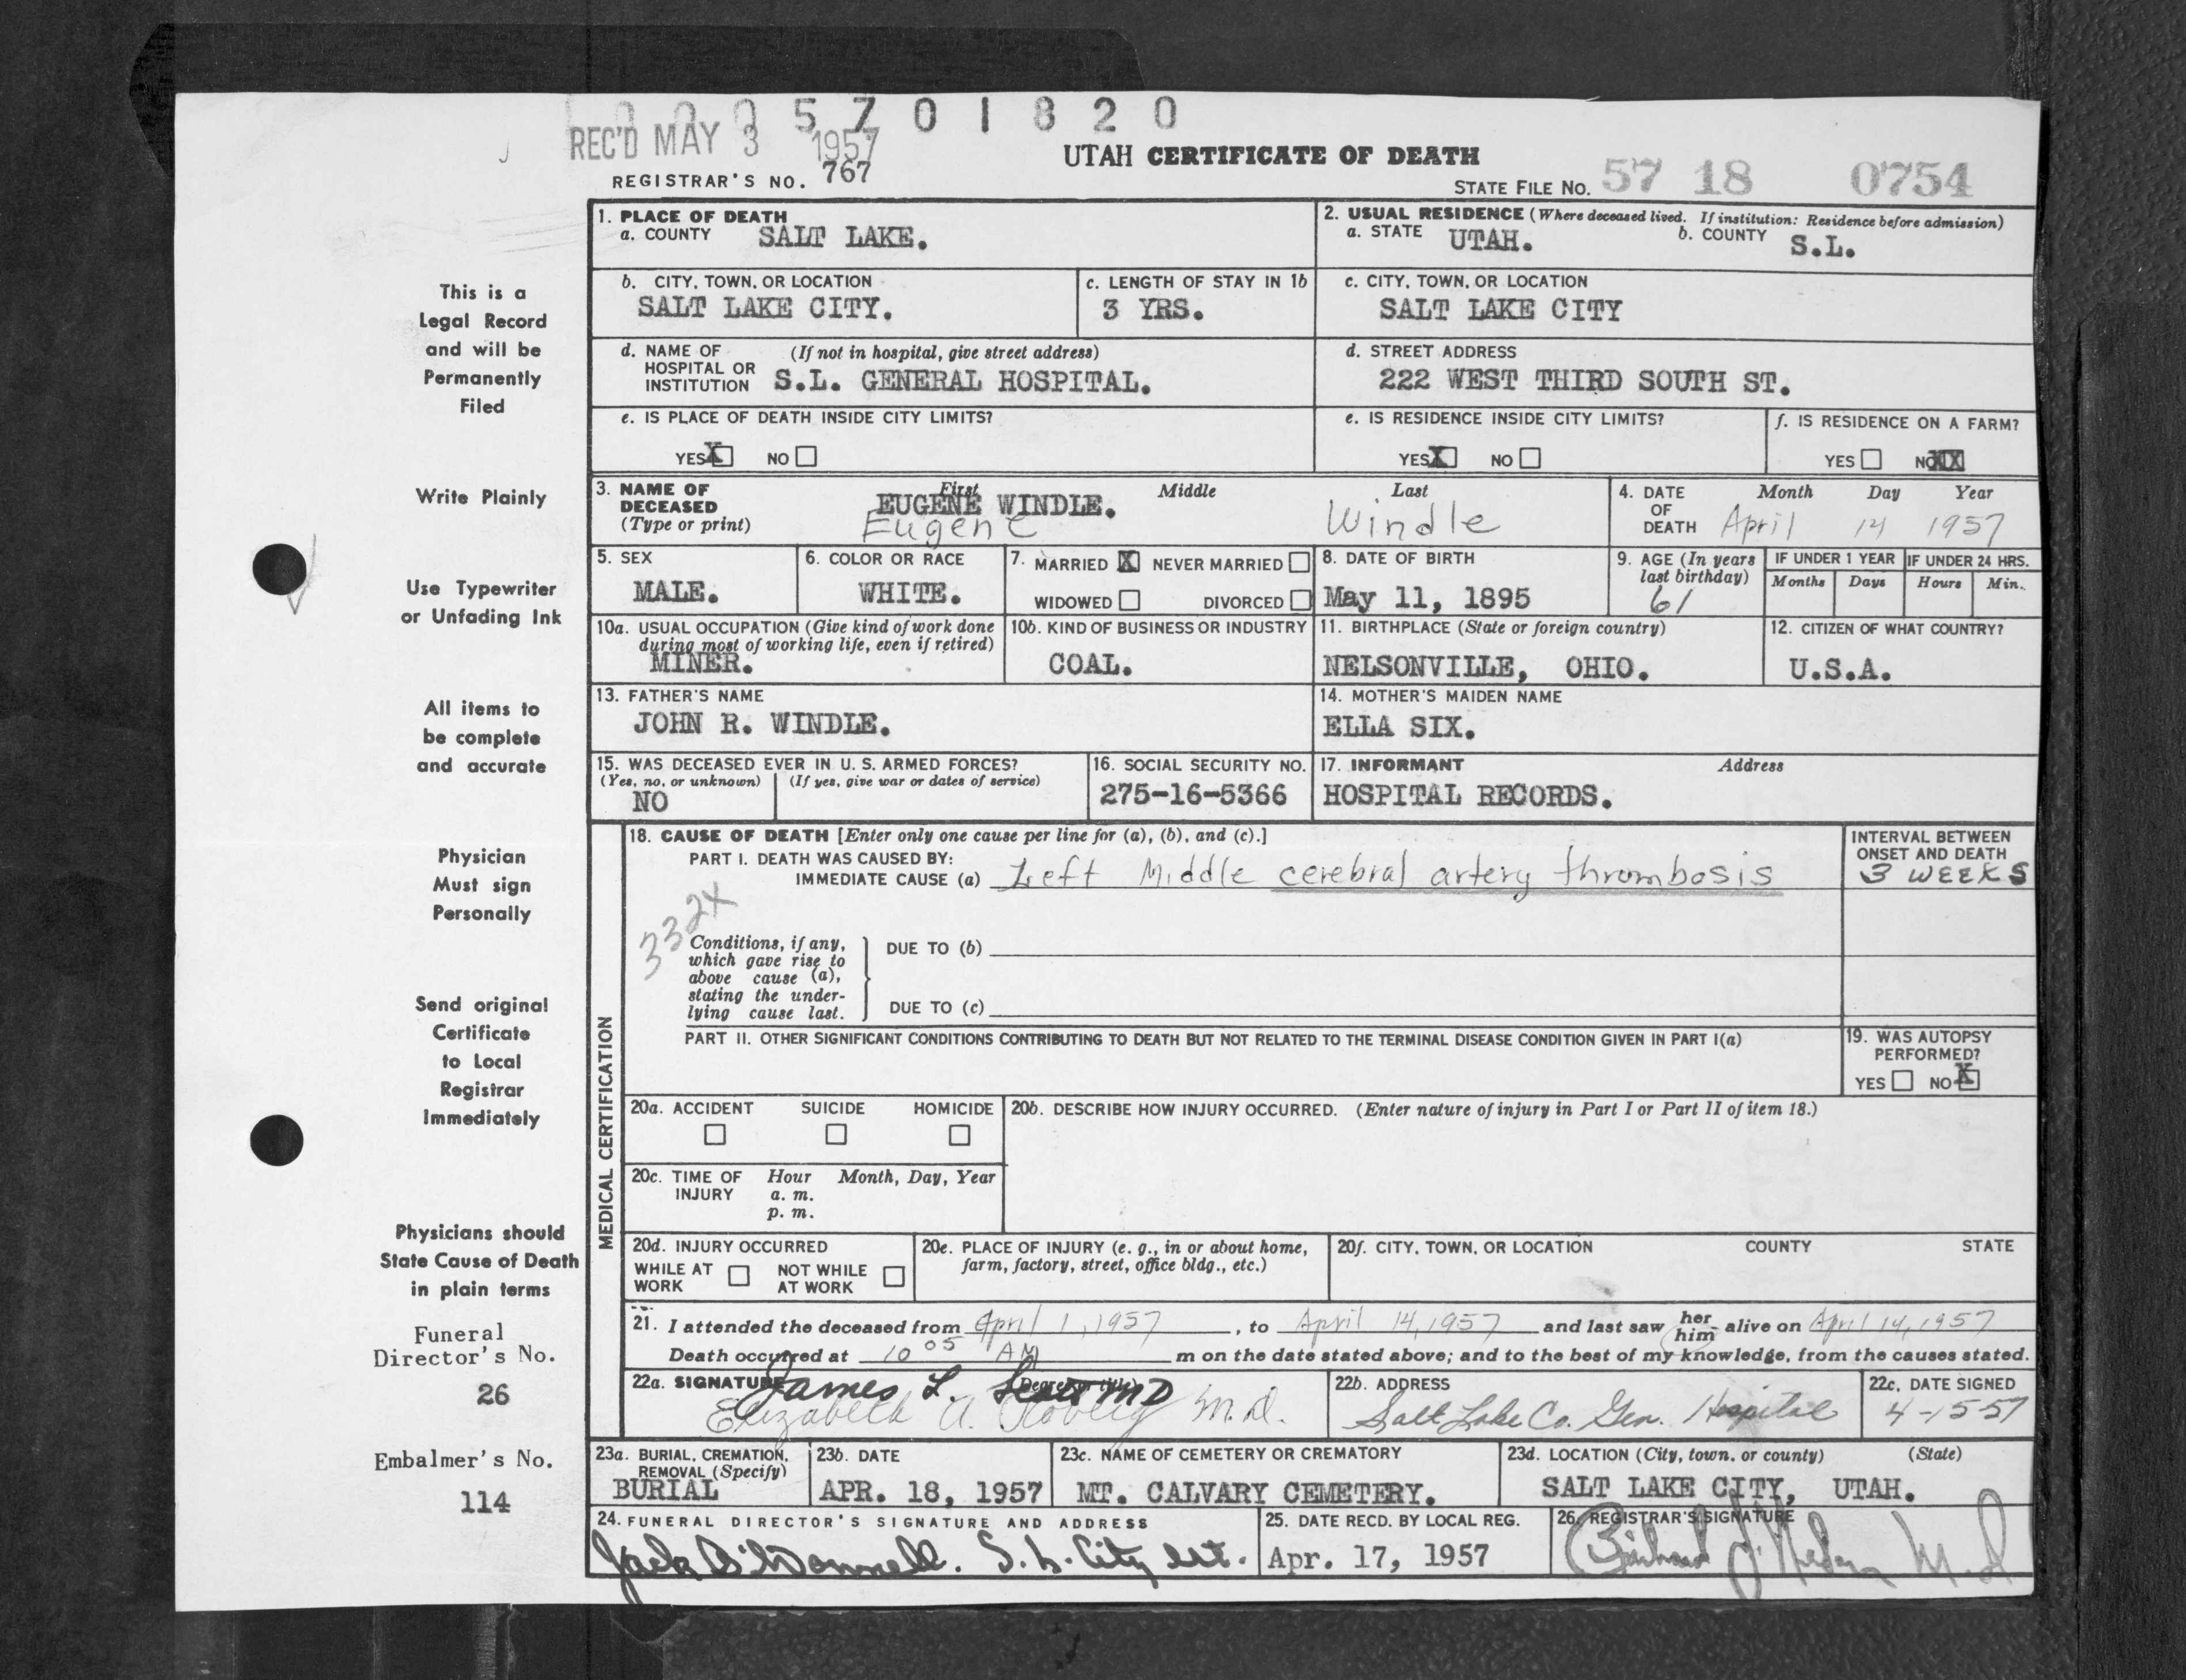 0 0 0 5 7 0 1 8 2 0
REC'D MAY 3 1957
UTAH CERTIFICATE OF DEATH
REGISTRAR'S NO. 767
STATE FILE NO. 57 18 0754
1. PLACE OF DEATH
a. COUNTY SALT LAKE.
2. USUAL RESIDENCE (Where deceased lived. If institution: Residence before admission)
a. STATE UTAH. b. COUNTY S.L.
b. CITY, TOWN, OR LOCATION
SALT LAKE CITY.
c. LENGTH OF STAY IN 1b
3 YRS.
c. CITY, TOWN, OR LOCATION
SALT LAKE CITY
d. NAME OF HOSPITAL OR INSTITUTION (If not in hospital, give street address)
S.L. GENERAL HOSPITAL.
d. STREET ADDRESS
222 WEST THIRD SOUTH ST.
e. IS PLACE OF DEATH INSIDE CITY LIMITS?
YES X NO
e. IS RESIDENCE INSIDE CITY LIMITS?
YES X NO
f. IS RESIDENCE ON A FARM?
YES NO XX
3. NAME OF DECEASED (Type or print)
First Middle Last
EUGENE WINDLE.
Eugene Windle
4. DATE OF DEATH Month Day Year
April 14 1957
5. SEX
MALE.
6. COLOR OR RACE
WHITE.
7. MARRIED X NEVER MARRIED
WIDOWED DIVORCED
8. DATE OF BIRTH
May 11, 1895
9. AGE (In years last birthday)
61
IF UNDER 1 YEAR
Months Days
IF UNDER 24 HRS.
Hours Min.
10a. USUAL OCCUPATION (Give kind of work done during most of working life, even if retired)
MINER.
10b. KIND OF BUSINESS OR INDUSTRY
COAL.
11. BIRTHPLACE (State or foreign country)
NELSONVILLE, OHIO.
12. CITIZEN OF WHAT COUNTRY?
U.S.A.
13. FATHER'S NAME
JOHN R. WINDLE.
14. MOTHER'S MAIDEN NAME
ELLA SIX.
15. WAS DECEASED EVER IN U. S. ARMED FORCES?
(Yes, no, or unknown) (If yes, give war or dates of service)
NO
16. SOCIAL SECURITY NO.
275-16-5366
17. INFORMANT Address
HOSPITAL RECORDS.
MEDICAL CERTIFICATION
18. CAUSE OF DEATH [Enter only one cause per line for (a), (b), and (c).]
PART I. DEATH WAS CAUSED BY:
IMMEDIATE CAUSE (a) Left Middle cerebral artery thrombosis
INTERVAL BETWEEN ONSET AND DEATH
3 WEEKS
332x
Conditions, if any, which gave rise to above cause (a), stating the underlying cause last.
DUE TO (b)
DUE TO (c)
PART II. OTHER SIGNIFICANT CONDITIONS CONTRIBUTING TO DEATH BUT NOT RELATED TO THE TERMINAL DISEASE CONDITION GIVEN IN PART I(a)
19. WAS AUTOPSY PERFORMED?
YES NO X
20a. ACCIDENT SUICIDE HOMICIDE
20b. DESCRIBE HOW INJURY OCCURRED. (Enter nature of injury in Part I or Part II of item 18.)
20c. TIME OF INJURY Hour Month, Day, Year
a. m.
p. m.
20d. INJURY OCCURRED
WHILE AT WORK NOT WHILE AT WORK
20e. PLACE OF INJURY (e. g., in or about home, farm, factory, street, office bldg., etc.)
20f. CITY, TOWN, OR LOCATION COUNTY STATE
21. I attended the deceased from April 1, 1957, to April 14, 1957 and last saw her him alive on April 14, 1957
Death occurred at 10 05 AM m on the date stated above; and to the best of my knowledge, from the causes stated.
22a. SIGNATURE (Degree or title)
James L. MD
Elizabeth A. M.D.
22b. ADDRESS
Salt Lake Co. Gen. Hospital
22c. DATE SIGNED
4-15-57
23a. BURIAL, CREMATION, REMOVAL (Specify)
BURIAL
23b. DATE
APR. 18, 1957
23c. NAME OF CEMETERY OR CREMATORY
MT. CALVARY CEMETERY.
23d. LOCATION (City, town, or county) (State)
SALT LAKE CITY, UTAH.
24. FUNERAL DIRECTOR'S SIGNATURE AND ADDRESS
Jack O'Donnell. S. L. City Ut.
25. DATE RECD. BY LOCAL REG.
Apr. 17, 1957
26. REGISTRAR'S SIGNATURE
M.D
This is a
Legal Record
and will be
Permanently
Filed
Write Plainly
Use Typewriter
or Unfading Ink
All items to
be complete
and accurate
Physician
Must sign
Personally
Send original
Certificate
to Local
Registrar
Immediately
Physicians should
State Cause of Death
in plain terms
Funeral
Director's No.
26
Embalmer's No.
114